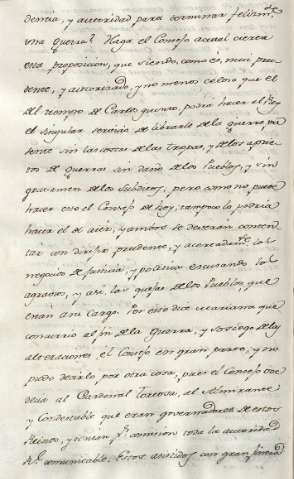 dencia, y autoridad para terminar felizm.te
una guerra? Haga el Consejo actual cierta
esta proposicion, que siendo, como es, mui pru
dente, y autorizado, y no menos celoso que el
del tiempo de Carlos quinto, podrá hacer al Rey
el singular servicio de librarle de la guerra, pre
sente sin las costas de las Tropas, y de los apres
tos de guerra sin daño de los Pueblos, y sin
gravamen de los Subditos, pero como no puede
hacer eso el Consejo de hoy, tampoco la podria
hacer el de ayer, y ambos se deveran conten
tar con dirixir prudente, y acertadam.te los
negocios de Justicia, y politicos escusando los
agravios, y asi las quejas de los Pueblos que
eran a su cargo. Por eso dice Mariana que
concurrio al fin de la Guerra, y sosiego de las
alteraciones el Consejo con gran parte, y no
pudo decirlo por otra cosa, pues el Consejo ove
decia al Cardenal Tortosa, al Almirante
y Condestable que eran governadores de estos
Reinos, y tenian p.r comision toda la autoridad
R.l comunicable. Estos asistidos con gran